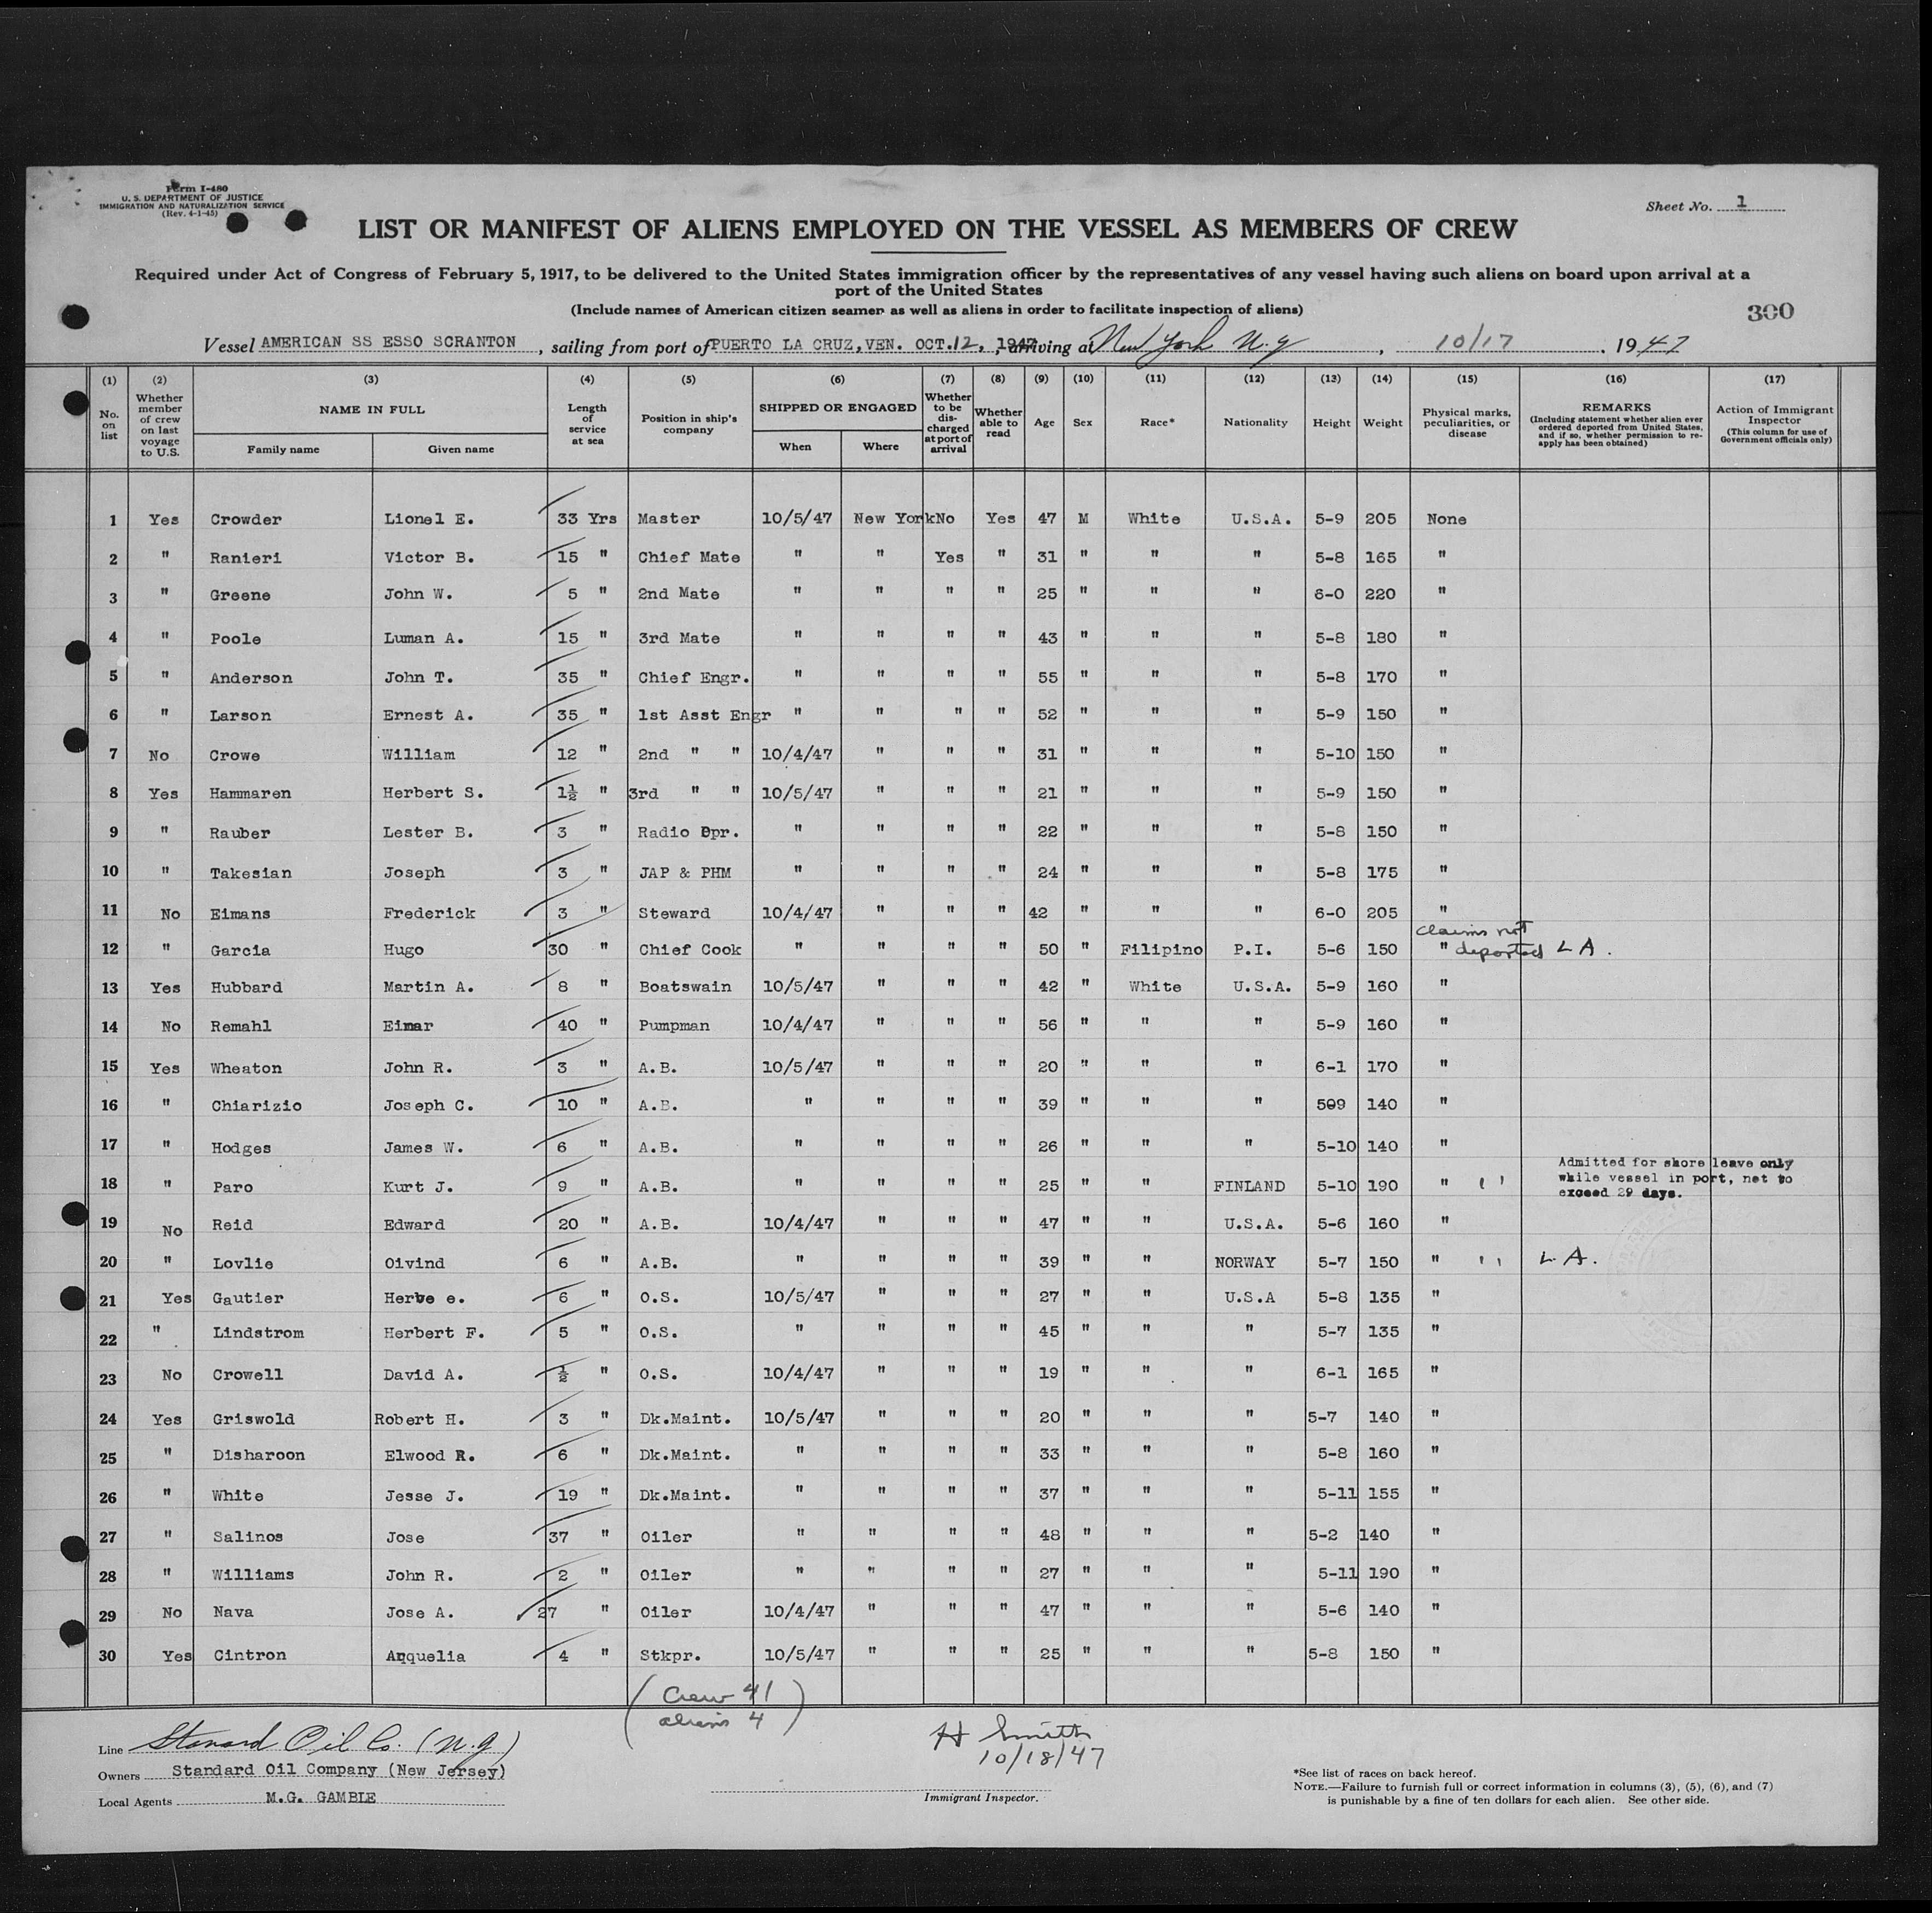 Form I-480
U. S. DEPARTMENT OF JUSTICE
IMMIGRATION AND NATURALIZATION SERVICE
(Rev. 4-1-45)
Sheet No. 1
LIST OR MANIFEST OF ALIENS EMPLOYED ON THE VESSEL AS MEMBERS OF CREW
Required under Act of Congress of February 5, 1917, to be delivered to the United States immigration officer by the representatives of any vessel having such aliens on board upon arrival at a
port of the United States
(Include names of American citizen seamen as well as aliens in order to facilitate inspection of aliens)
300
Vessel AMERICAN SS ESSO SCRANTON, sailing from port of PUERTO LA CRUZ, VEN. OCT.12, 1947, arriving at New York N.Y, 10/17, 1947
(1) No. on list
(2) Whether member of crew on last voyage to U.S.
(3) NAME IN FULL Family name Given name
(4) Length of service at sea
(5) Position in ship's company
(6) SHIPPED OR ENGAGED When Where
(7) Whether to be discharged at port of arrival
(8) Whether able to read
(9) Age
(10) Sex
(11) Race*
(12) Nationality
(13) Height
(14) Weight
(15) Physical marks, peculiarities, or disease
(16) REMARKS (Including statement whether alien ever ordered deported from United States, and if so, whether permission to reapply has been obtained)
(17) Action of Immigrant Inspector (This column for use of Government officials only)
1 Yes Crowder Lionel E. 33 Yrs Master 10/5/47 New York No Yes 47 M White U.S.A. 5-9 205 None
2 " Ranieri Victor B. 15 " Chief Mate " " Yes " 31 " " " 5-8 165 "
3 " Greene John W. 5 " 2nd Mate " " " " 25 " " " 6-0 220 "
4 " Poole Luman A. 15 " 3rd Mate " " " " 43 " " " 5-8 180 "
5 " Anderson John T. 35 " Chief Engr. " " " " 55 " " " 5-8 170 "
6 " Larson Ernest A. 35 " 1st Asst Engr " " " " 52 " " " 5-9 150 "
7 No Crowe William 12 " 2nd " " 10/4/47 " " " 31 " " " 5-10 150 "
8 Yes Hammaren Herbert S. 1½ " 3rd " " 10/5/47 " " " 21 " " " 5-9 150 "
9 " Rauber Lester B. 3 " Radio Opr. " " " " 22 " " " 5-8 150 "
10 " Takesian Joseph 3 " JAP & PHM " " " " 24 " " " 5-8 175 "
11 No Eimans Frederick 3 " Steward 10/4/47 " " " 42 " " " 6-0 205 "
12 " Garcia Hugo 30 " Chief Cook " " " " 50 " Filipino P.I. 5-6 150 " claims not deported L A.
13 Yes Hubbard Martin A. 8 " Boatswain 10/5/47 " " " 42 " White U.S.A. 5-9 160 "
14 No Remahl Einar 40 " Pumpman 10/4/47 " " " 56 " " " 5-9 160 "
15 Yes Wheaton John R. 3 " A.B. 10/5/47 " " " 20 " " " 6-1 170 "
16 " Chiarizio Joseph C. 10 " A.B. " " " " 39 " " " 509 140 "
17 " Hodges James W. 6 " A.B. " " " " 26 " " " 5-10 140 "
18 " Paro Kurt J. 9 " A.B. " " " " 25 " " FINLAND 5-10 190 " " Admitted for shore leave only
while vessel in port, not to
exceed 29 days.
19 No Reid Edward 20 " A.B. 10/4/47 " " " 47 " " U.S.A. 5-6 160 "
20 " Lovlie Oivind 6 " A.B. " " " " 39 " " NORWAY 5-7 150 " " L A.
21 Yes Gautier Herve e. 6 " O.S. 10/5/47 " " " 27 " " U.S.A 5-8 135 "
22 " Lindstrom Herbert F. 5 " O.S. " " " " 45 " " " 5-7 135 "
23 No Crowell David A. ½ " O.S. 10/4/47 " " " 19 " " " 6-1 165 "
24 Yes Griswold Robert H. 3 " Dk.Maint. 10/5/47 " " " 20 " " " 5-7 140 "
25 " Disharoon Elwood R. 6 " Dk.Maint. " " " " 33 " " " 5-8 160 "
26 " White Jesse J. 19 " Dk.Maint. " " " " 37 " " " 5-11 155 "
27 " Salinos Jose 37 " Oiler " " " " 48 " " " 5-2 140 "
28 " Williams John R. 2 " Oiler " " " " 27 " " " 5-11 190 "
29 No Nava Jose A. 27 " Oiler 10/4/47 " " " 47 " " " 5-6 140 "
30 Yes Cintron Anquelia 4 " Stkpr. 10/5/47 " " " 25 " " " 5-8 150 "
(Crew 41
aliens 4)
Line Stanard Oil Co. (N.J)
Owners Standard Oil Company (New Jersey)
Local Agents M.G. GAMBLE
H Smith
10/18/47
Immigrant Inspector.
*See list of races on back hereof.
NOTE.—Failure to furnish full or correct information in columns (3), (5), (6), and (7)
is punishable by a fine of ten dollars for each alien. See other side.